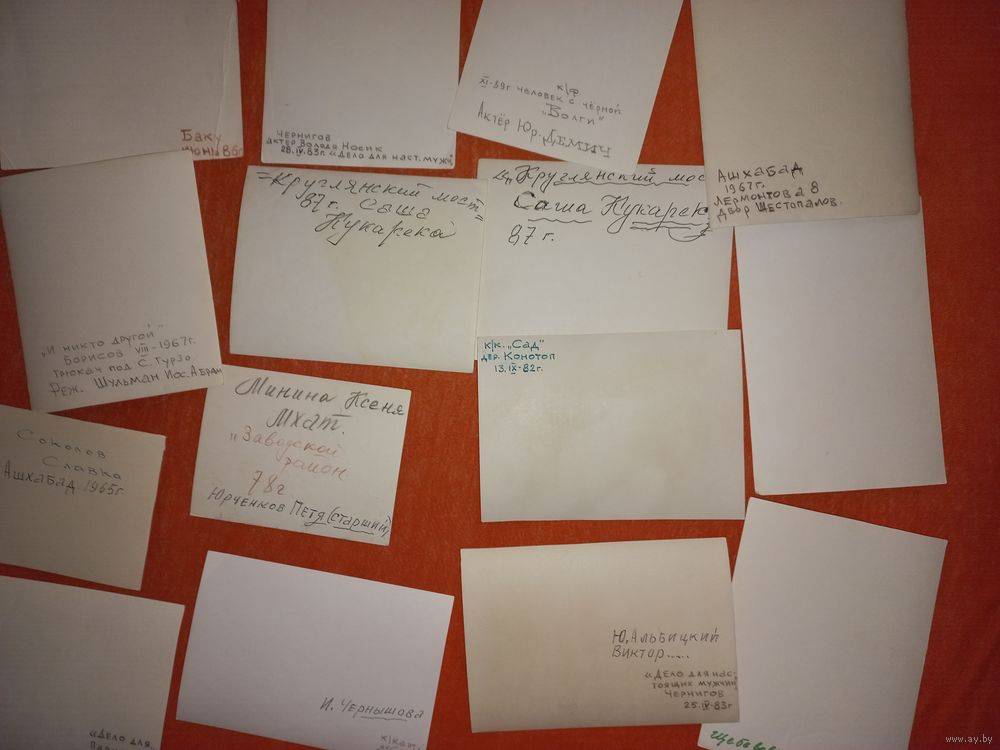 Баку
июнь 86г
Чернигов
актёр Володя Носик
28.IV.83г. «Дело для наст. мужч
к/ф
XI-89г Человек с чёрной
„Волги"
Актёр Юр. Демич
Ашхабад
1967г.
Лермонтова 8
Двор Шестопалов.
„И никто другой"
Борисов VIII-1967г.
трюкач под С. Гурзо.
Реж. Шульман Иос. Абрам
=Круглянский мост=
87г. Саша
Кукареко
„Круглянский мос
Саша Кукарек
87 г.
к/к. „Сад"
дер. Конотоп
13.IX-82г.
Соколов
Славка
Ашхабад. 1965г.
Минина Ксеня
Мхат.
„Заводской
район
78г
Юрченков Петя (старший)
И. Чернышова
к/карт
Ю. Альбицкий
Виктор.....
«Дело для нас-
тоящих мужчин
Чернигов
25.IV-83г
«Дело для
www.ay.by